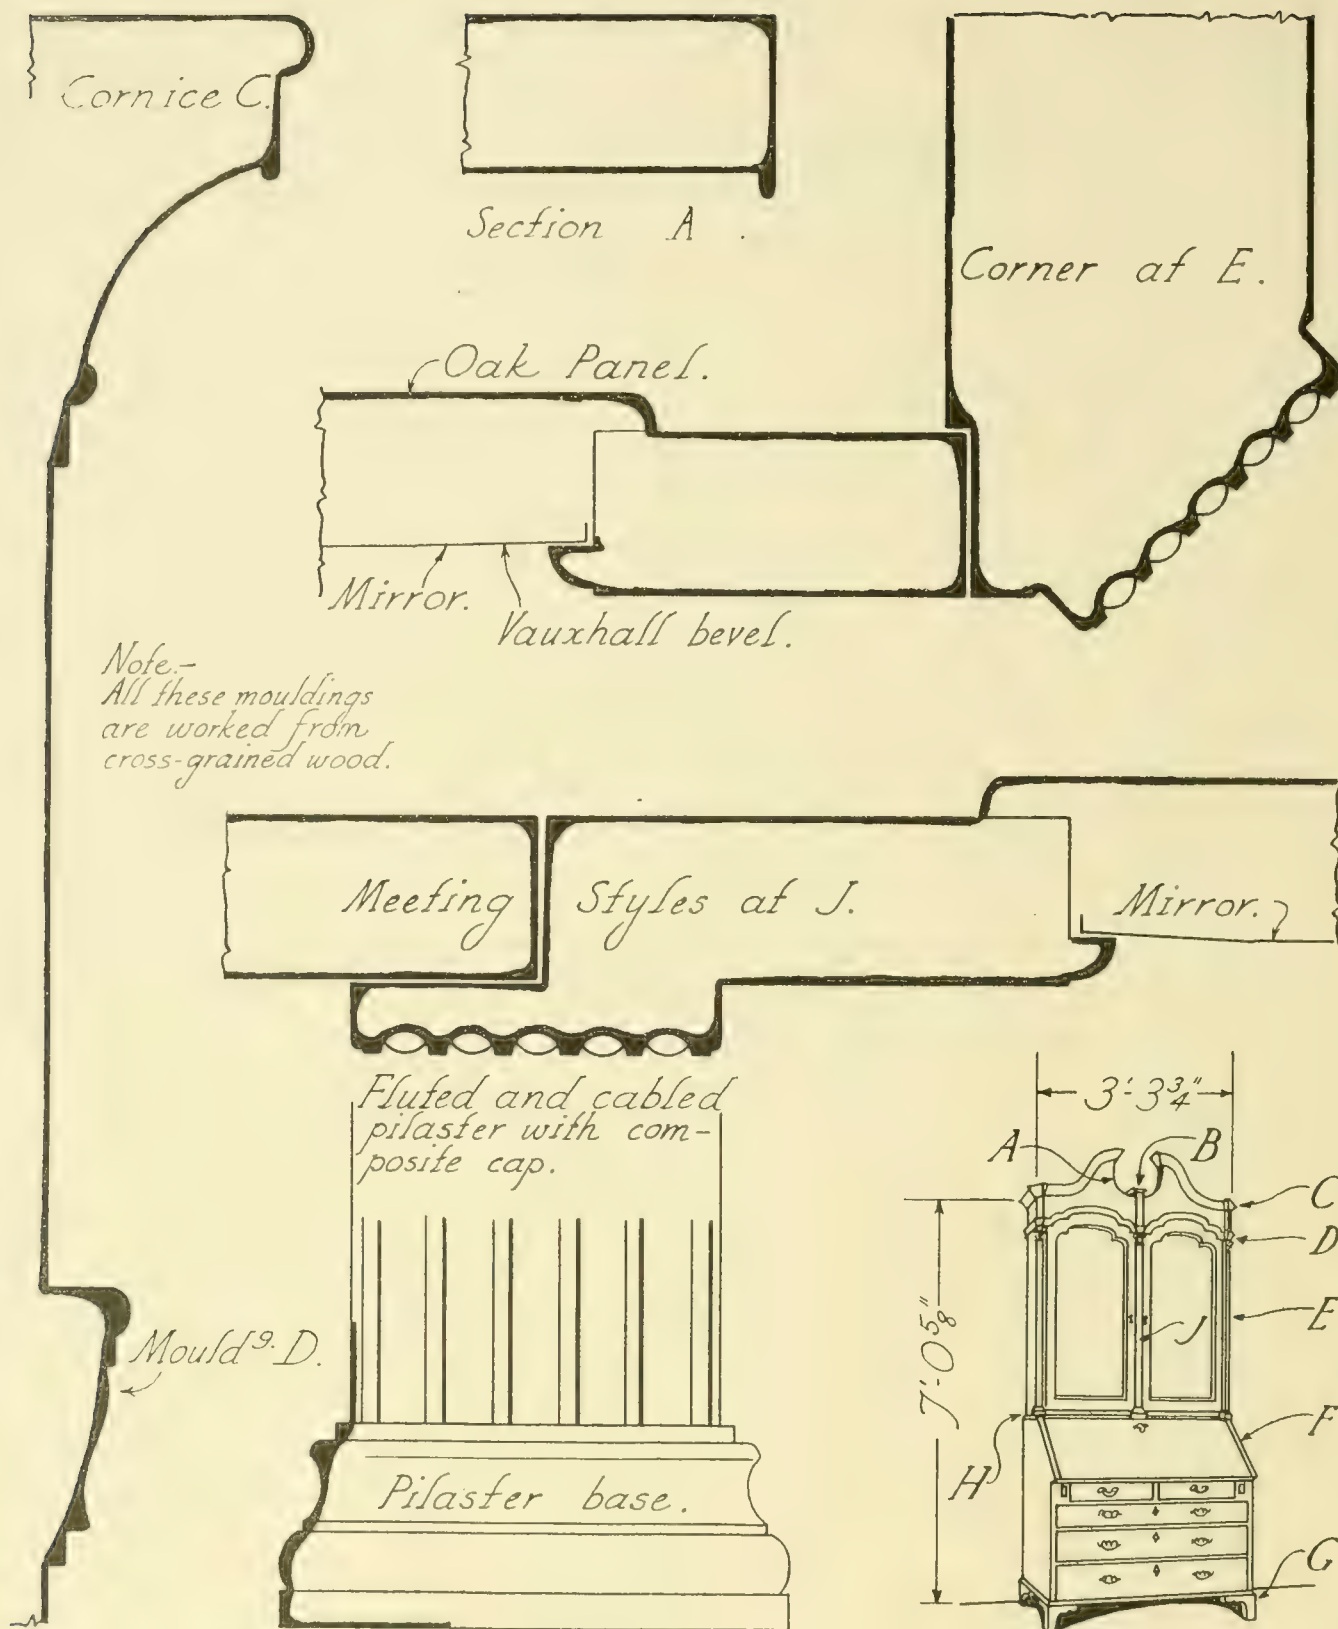 Cornice C.
Section A.
Corner at E.
Oak Panel.
Mirror.
Vauxhall bevel.
Note.-
All these mouldings
are worked from
cross-grained wood.
Meeting Styles at J.
Mirror.
Fluted and cabled
pilaster with com-
posite cap.
Mould⁹· D.
Pilaster base.
3'-3¾"
A
B
C
D
E
J
7'-0⅝"
F
H
G